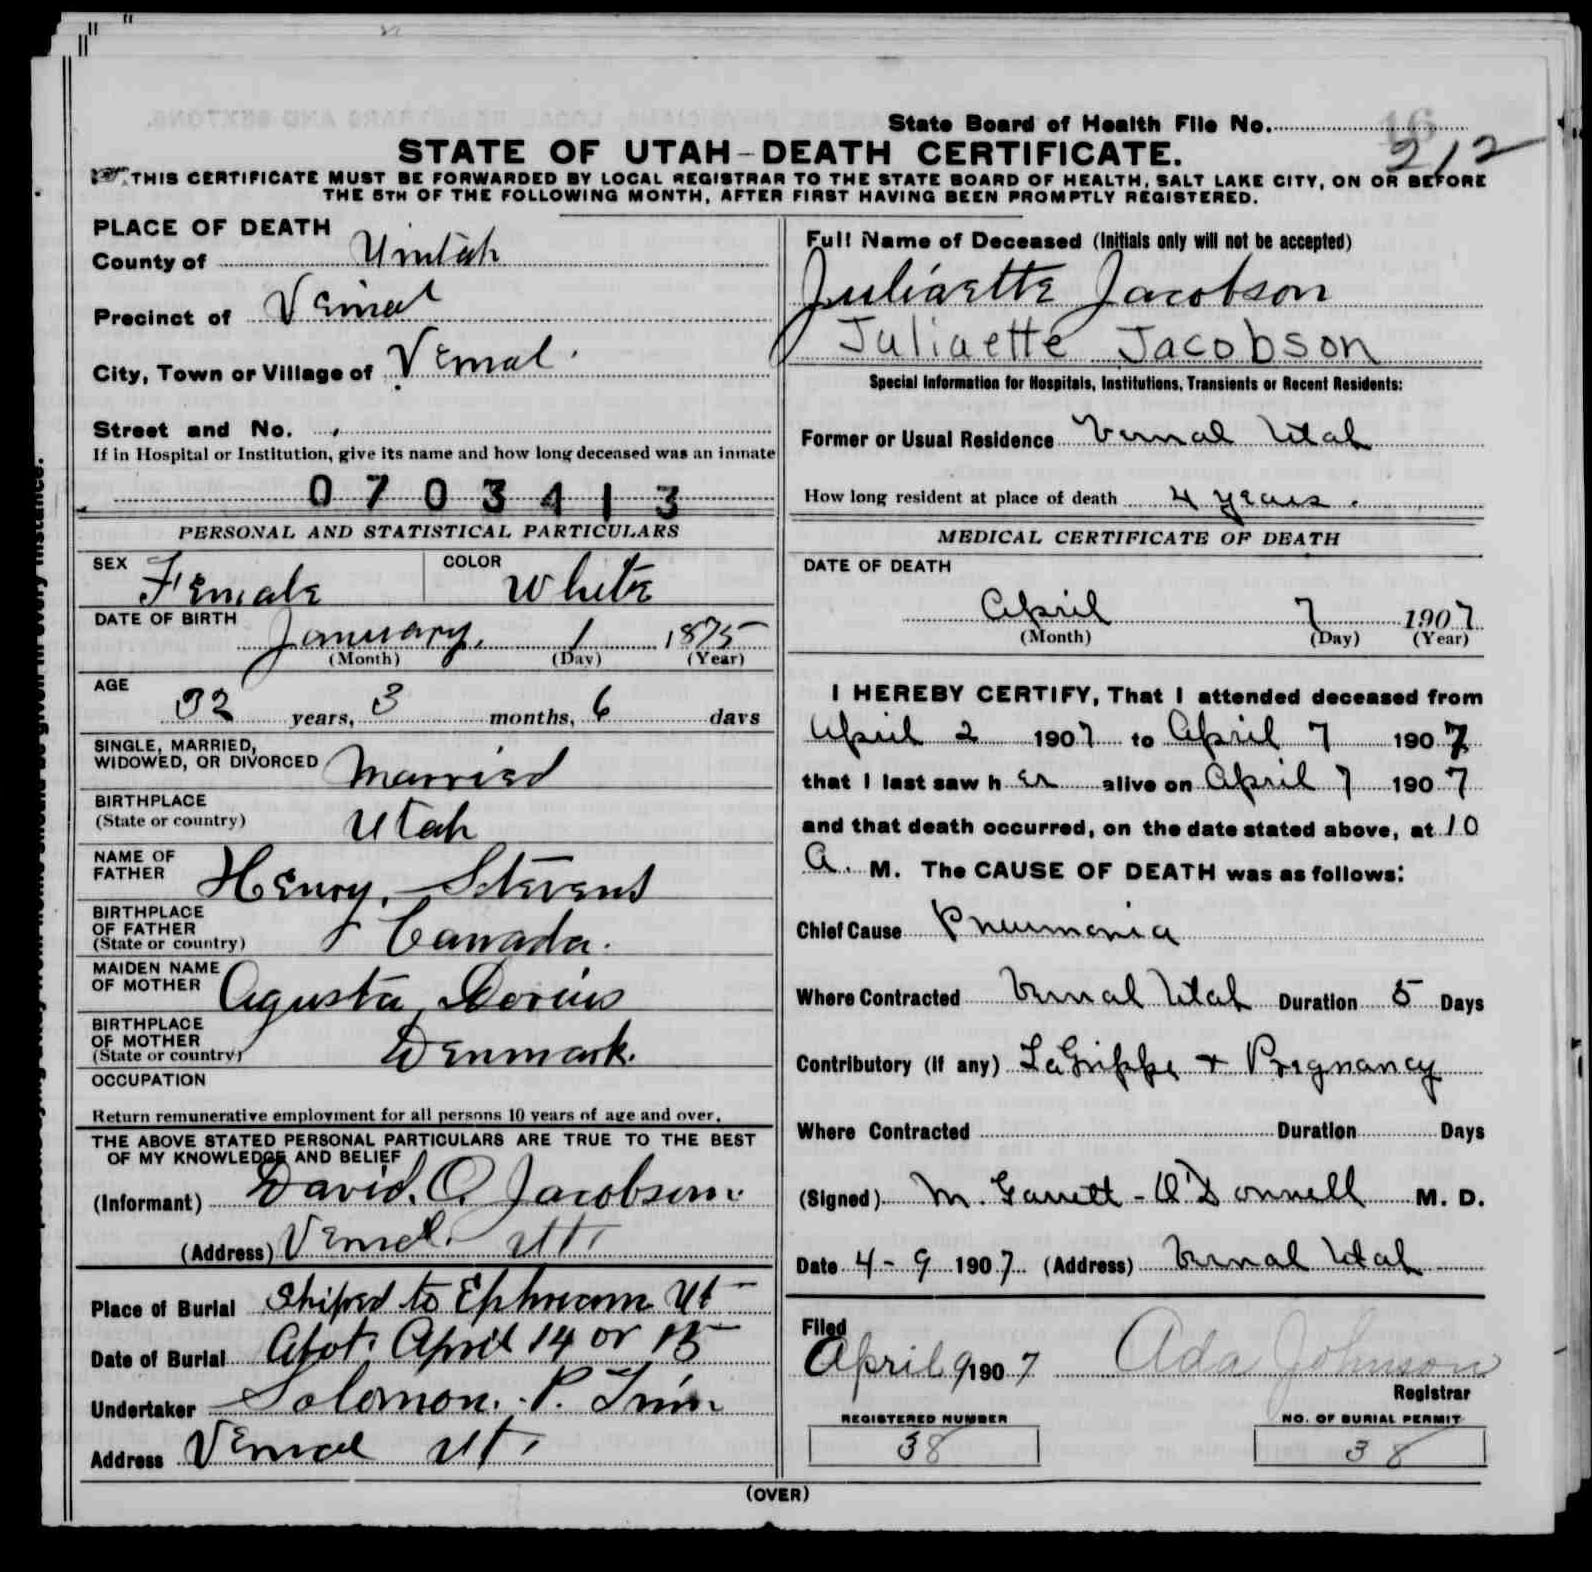 State Board of Health File No. 16
212
STATE OF UTAH-DEATH CERTIFICATE.
THIS CERTIFICATE MUST BE FORWARDED BY LOCAL REGISTRAR TO THE STATE BOARD OF HEALTH, SALT LAKE CITY, ON OR BEFORE
THE 5TH OF THE FOLLOWING MONTH, AFTER FIRST HAVING BEEN PROMPTLY REGISTERED.
PLACE OF DEATH
County of Uintah
Precinct of Vernal
City, Town or Village of Vernal
Street and No.
If in Hospital or Institution, give its name and how long deceased was an inmate
0703413
PERSONAL AND STATISTICAL PARTICULARS
SEX Female COLOR White
DATE OF BIRTH
January, 1 1875
(Month) (Day) (Year)
AGE
32 years, 3 months, 6 days
SINGLE, MARRIED,
WIDOWED, OR DIVORCED Married
BIRTHPLACE
(State or country) Utah
NAME OF
FATHER Henry Stevens
BIRTHPLACE
OF FATHER
(State or country) Canada.
MAIDEN NAME
OF MOTHER Agusta Dorius
BIRTHPLACE
OF MOTHER
(State or country) Denmark.
OCCUPATION
Return remunerative employment for all persons 10 years of age and over.
THE ABOVE STATED PERSONAL PARTICULARS ARE TRUE TO THE BEST
OF MY KNOWLEDGE AND BELIEF
(Informant) David. O. Jacobson
(Address) Vernal Ut.
Place of Burial Shiped to Ephream Ut
Date of Burial Abot April 14 or 15
Undertaker Solomon. P.
Address Vernal Ut.
Full Name of Deceased (Initials only will not be accepted)
Juliaette Jacobson
Juliaette Jacobson
Special Information for Hospitals, Institutions, Transients or Recent Residents:
Former or Usual Residence Vernal Utah
How long resident at place of death 4 years.
MEDICAL CERTIFICATE OF DEATH
DATE OF DEATH
April 7 1907
(Month) (Day) (Year)
I HEREBY CERTIFY, That I attended deceased from
April 2 1907 to April 7 1907
that I last saw her alive on April 7 1907
and that death occurred, on the date stated above, at 10
A. M. The CAUSE OF DEATH was as follows:
Chief Cause Pneumonia
Where Contracted Vernal Utah Duration 5 Days
Contributory (if any) LaGrippe + Pregnancy
Where Contracted Duration Days
(Signed) M. Garrett-O'Donnell M. D.
Date 4-9 1907 (Address) Vernal Utah
Filed
April 9 1907 Ada Johnson
Registrar
REGISTERED NUMBER
38
NO. OF BURIAL PERMIT
38
(OVER)